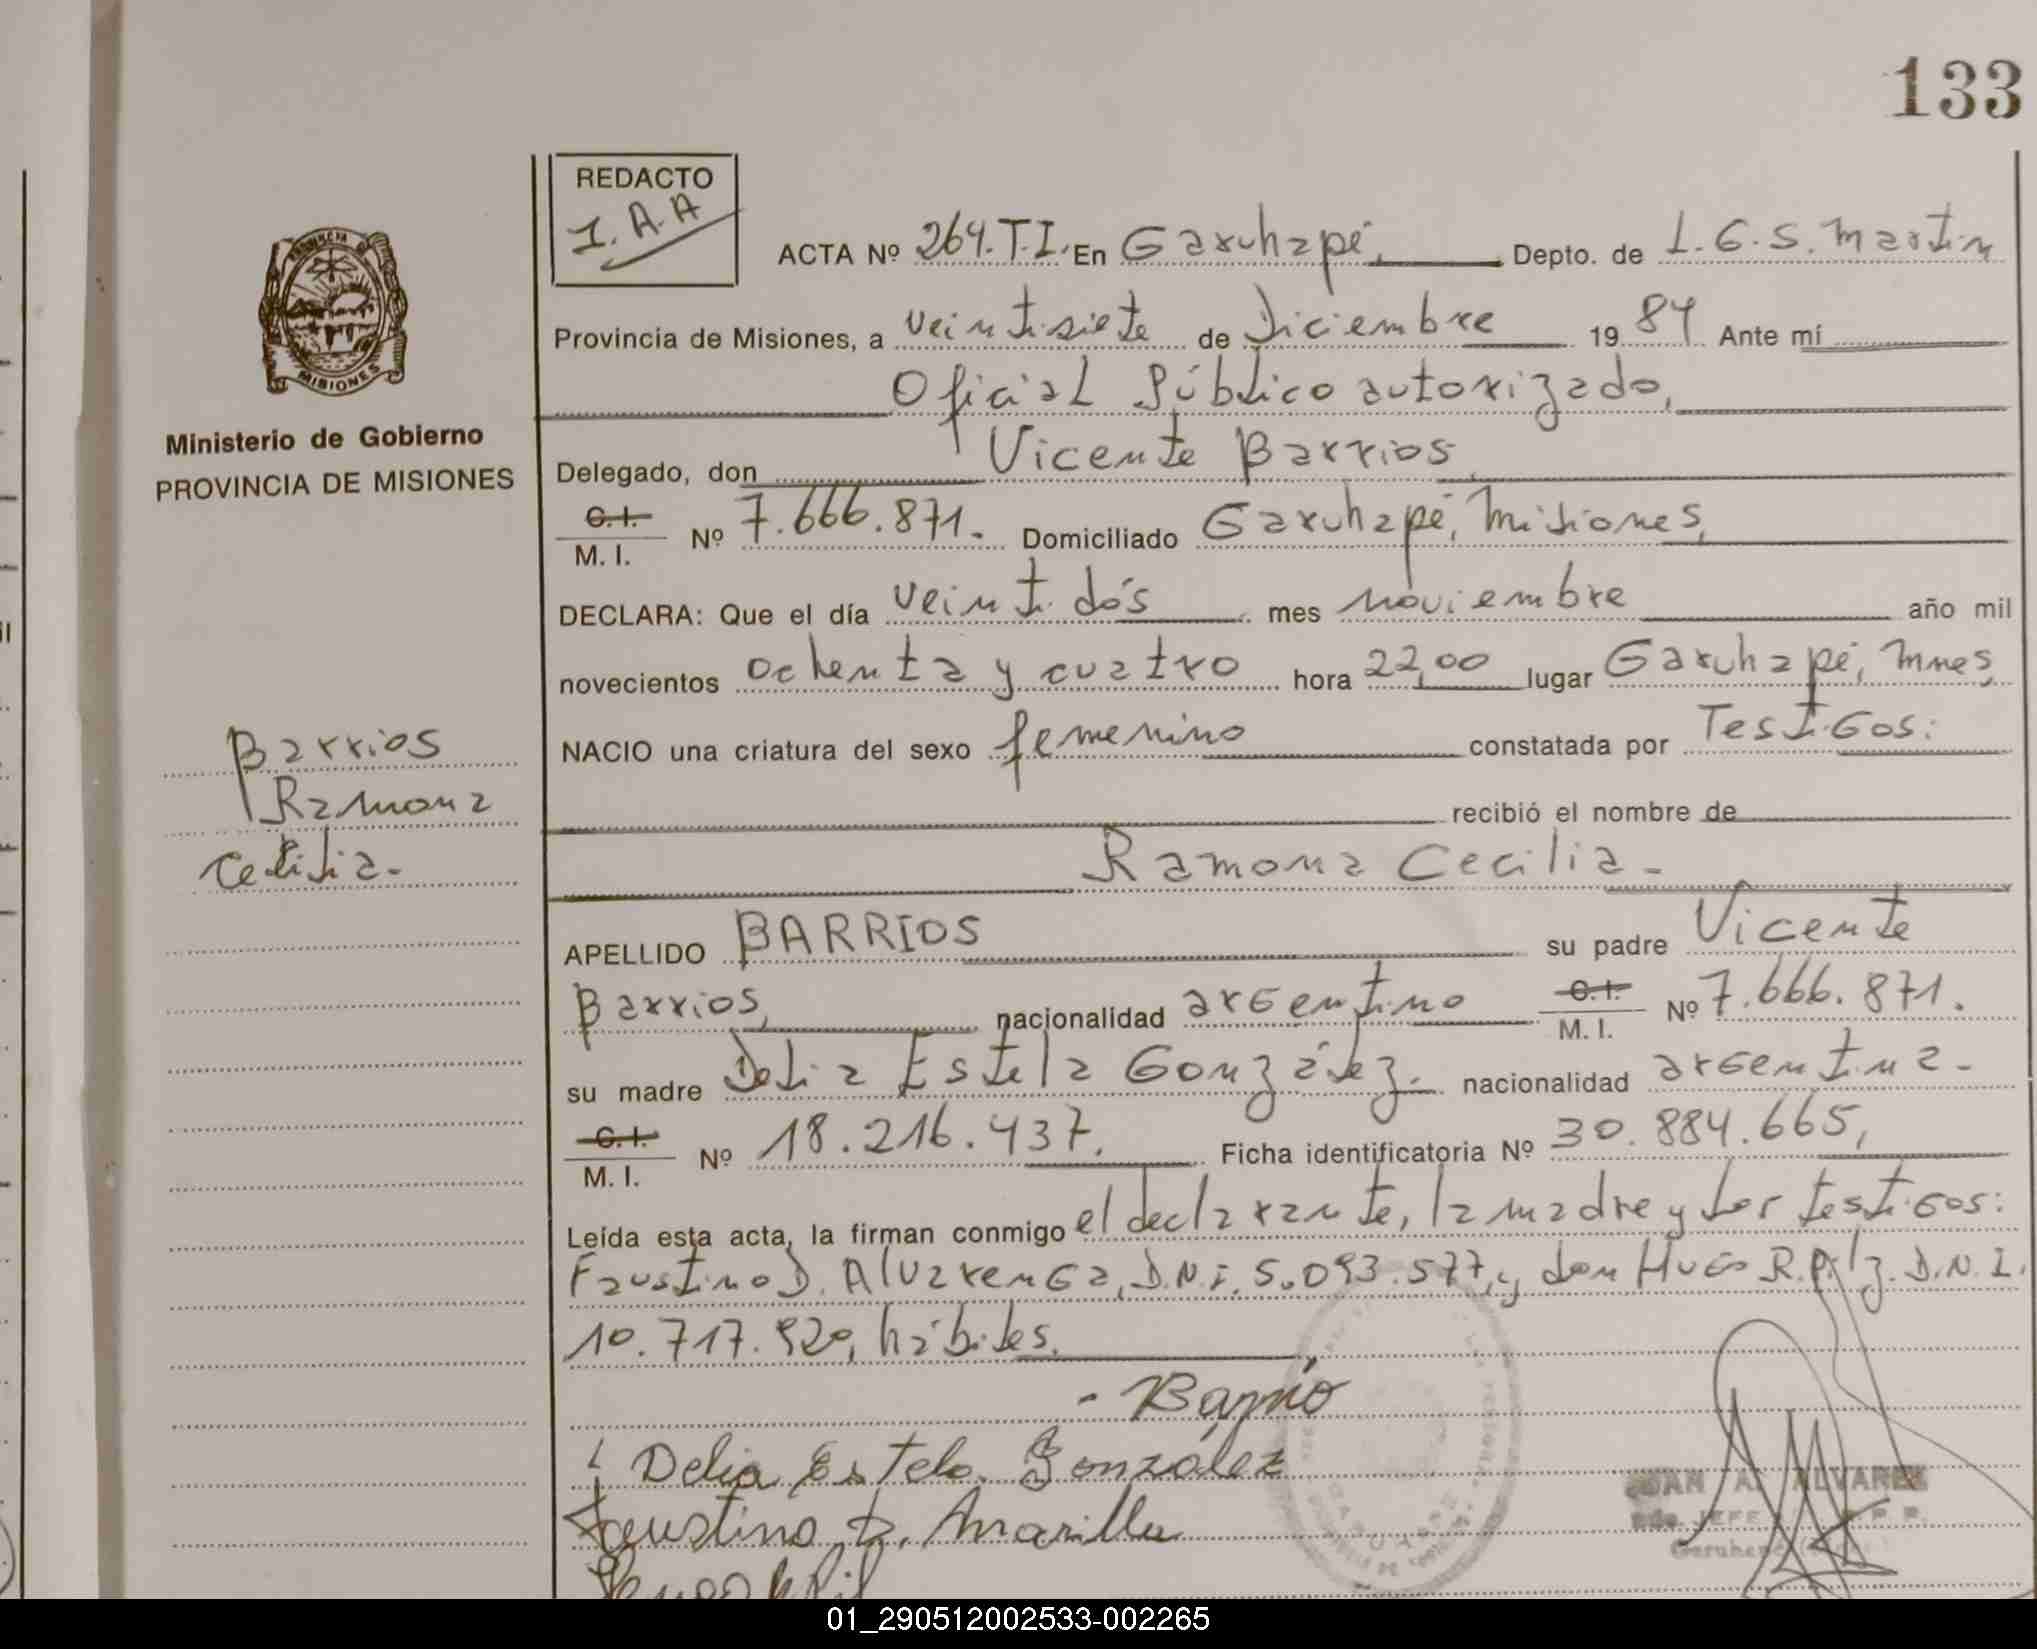 133
REDACTO
I. A. A
ACTA Nº 264. T.I. En Garuhapé, Depto. de L. G. S. Martin
Provincia de Misiones, a veintisiete de Diciembre 19 84 Ante mí
Oficial Público autorizado,
Delegado, don Vicente Barrios
C. I. M. I. Nº 7.666.871. Domiciliado Garuhapé, Misiones,
DECLARA: Que el día veintidós mes noviembre año mil
novecientos ochenta y cuatro hora 22,00 lugar Garuhapé, Mnes,
NACIO una criatura del sexo femenino constatada por Testigos:
recibió el nombre de
Ramona Cecilia -
APELLIDO BARRIOS su padre Vicente
Barrios, nacionalidad argentino C. I. M. I. Nº 7.666.871.
su madre Delia Estela González.- nacionalidad argentina -
C. I. M. I. Nº 18.216.437. Ficha identificatoria Nº 30.884.665,
Leída esta acta, la firman conmigo el declarante, la madre y los testigos:
Faustino D. Alvarenga, D.N.I. 5.093.577, y don Hugo R. D.N.I.
10.717.920, hábiles.
PROVINCIA DE MISIONES
Ministerio de Gobierno
PROVINCIA DE MISIONES
Barrios
Ramona
Cecilia -
- Barrio
Delia Estela González
Faustino D.
JUAN A. ALVAREZ
JEFE
Garuhapé
01_290512002533-002265